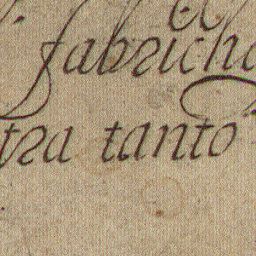 el
fabricho
tra tanto